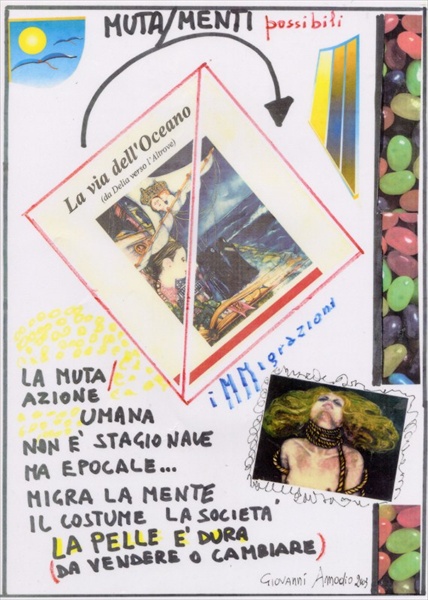 MUTA/MENTI possibili
La via dell'Oceano
(da Delia verso l'Altrove)
iMMigrazioni
LA MUTA/
AZIONE
UMANA
NON E' STAGIONALE
MA EPOCALE...
MIGRA LA MENTE
IL COSTUME LA SOCIETA'
LA PELLE E' DURA
(DA VENDERE O CAMBIARE)
GIOVANNI Amodio